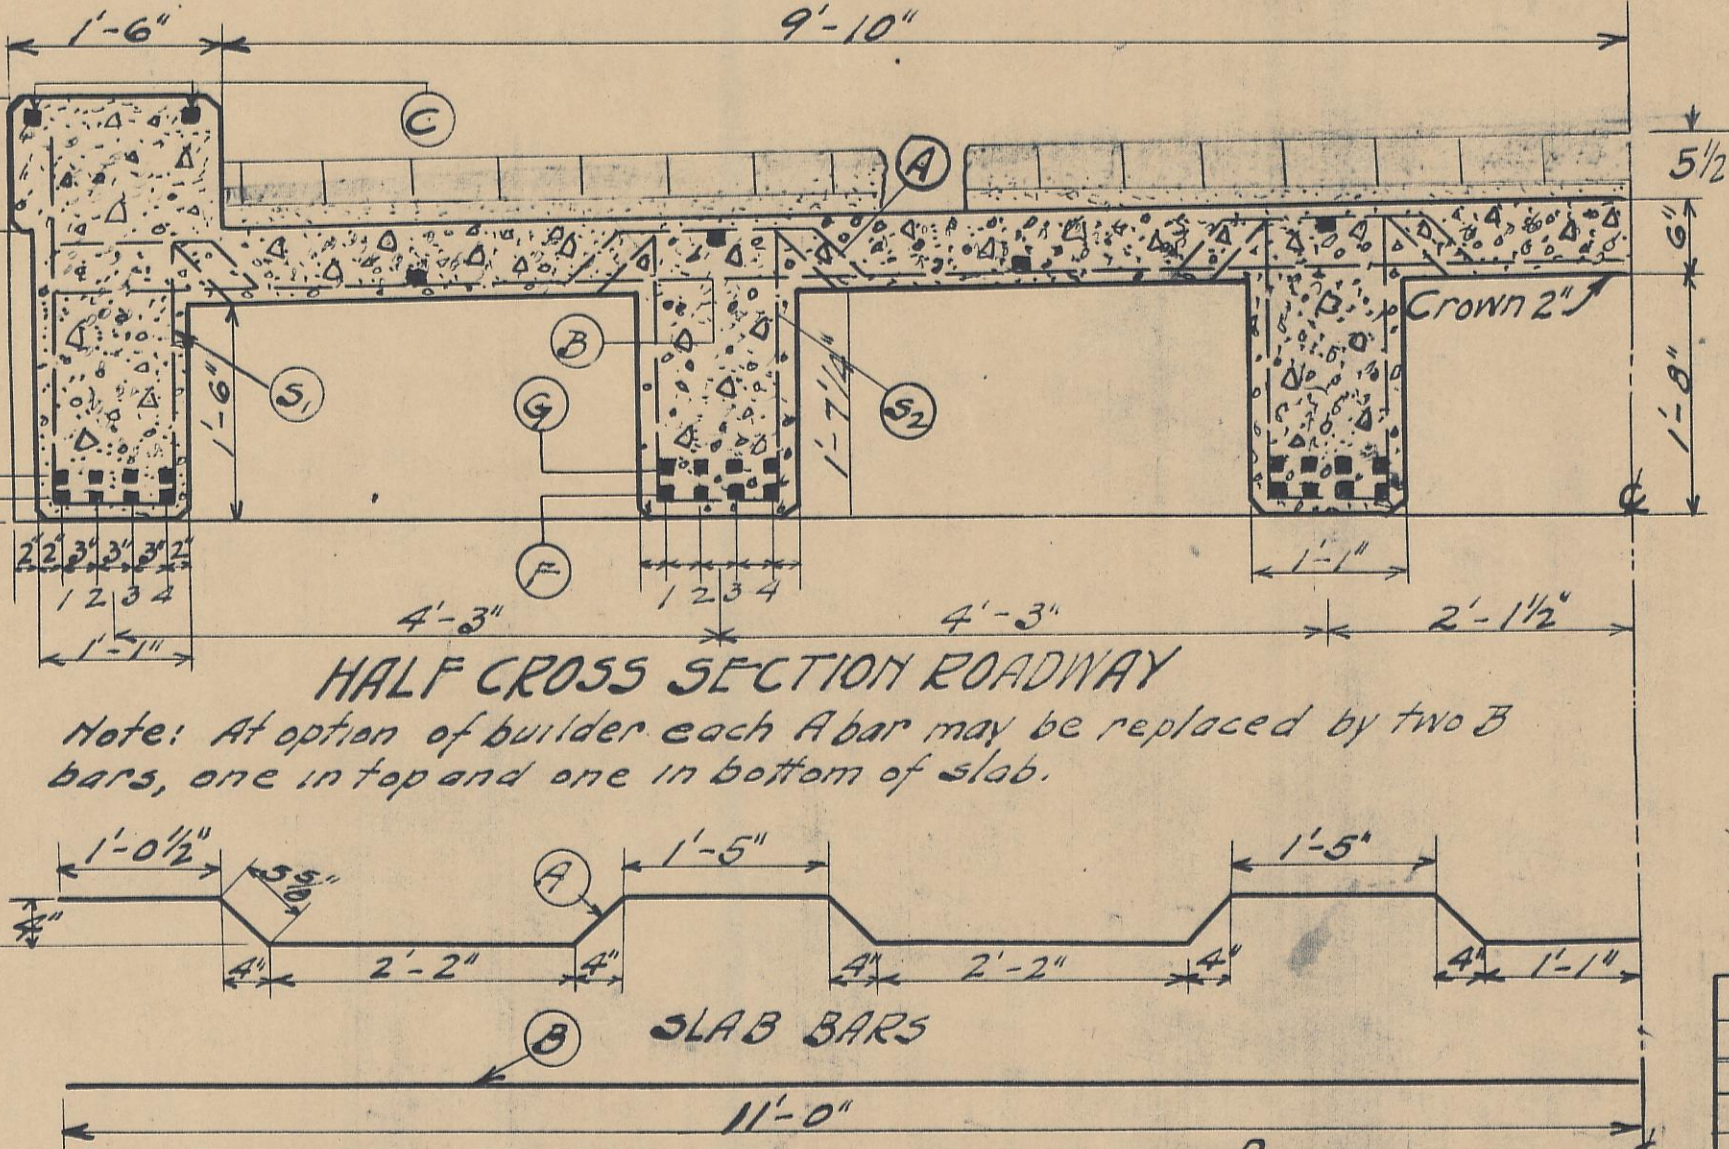 1'-6"
9'-10"
C
A
5 1/2
6"
Crown 2"
B
S1
1'-6"
G
1'-7 1/4"
S2
1'-8"
℄
F
2" 2" 3" 3" 3" 2"
1 2 3 4
1 2 3 4
1'-1"
4'-3"
4'-3"
2'-1 1/2"
1'-1"
HALF CROSS SECTION ROADWAY
Note: At option of builder each A bar may be replaced by two B
bars, one in top and one in bottom of slab.
1'-0 1/2"
5 5/8"
A
1'-5"
1'-5"
4"
4" 2'-2" 4" 4" 2'-2" 4" 4" 1'-1"
B
SLAB BARS
11'-0"